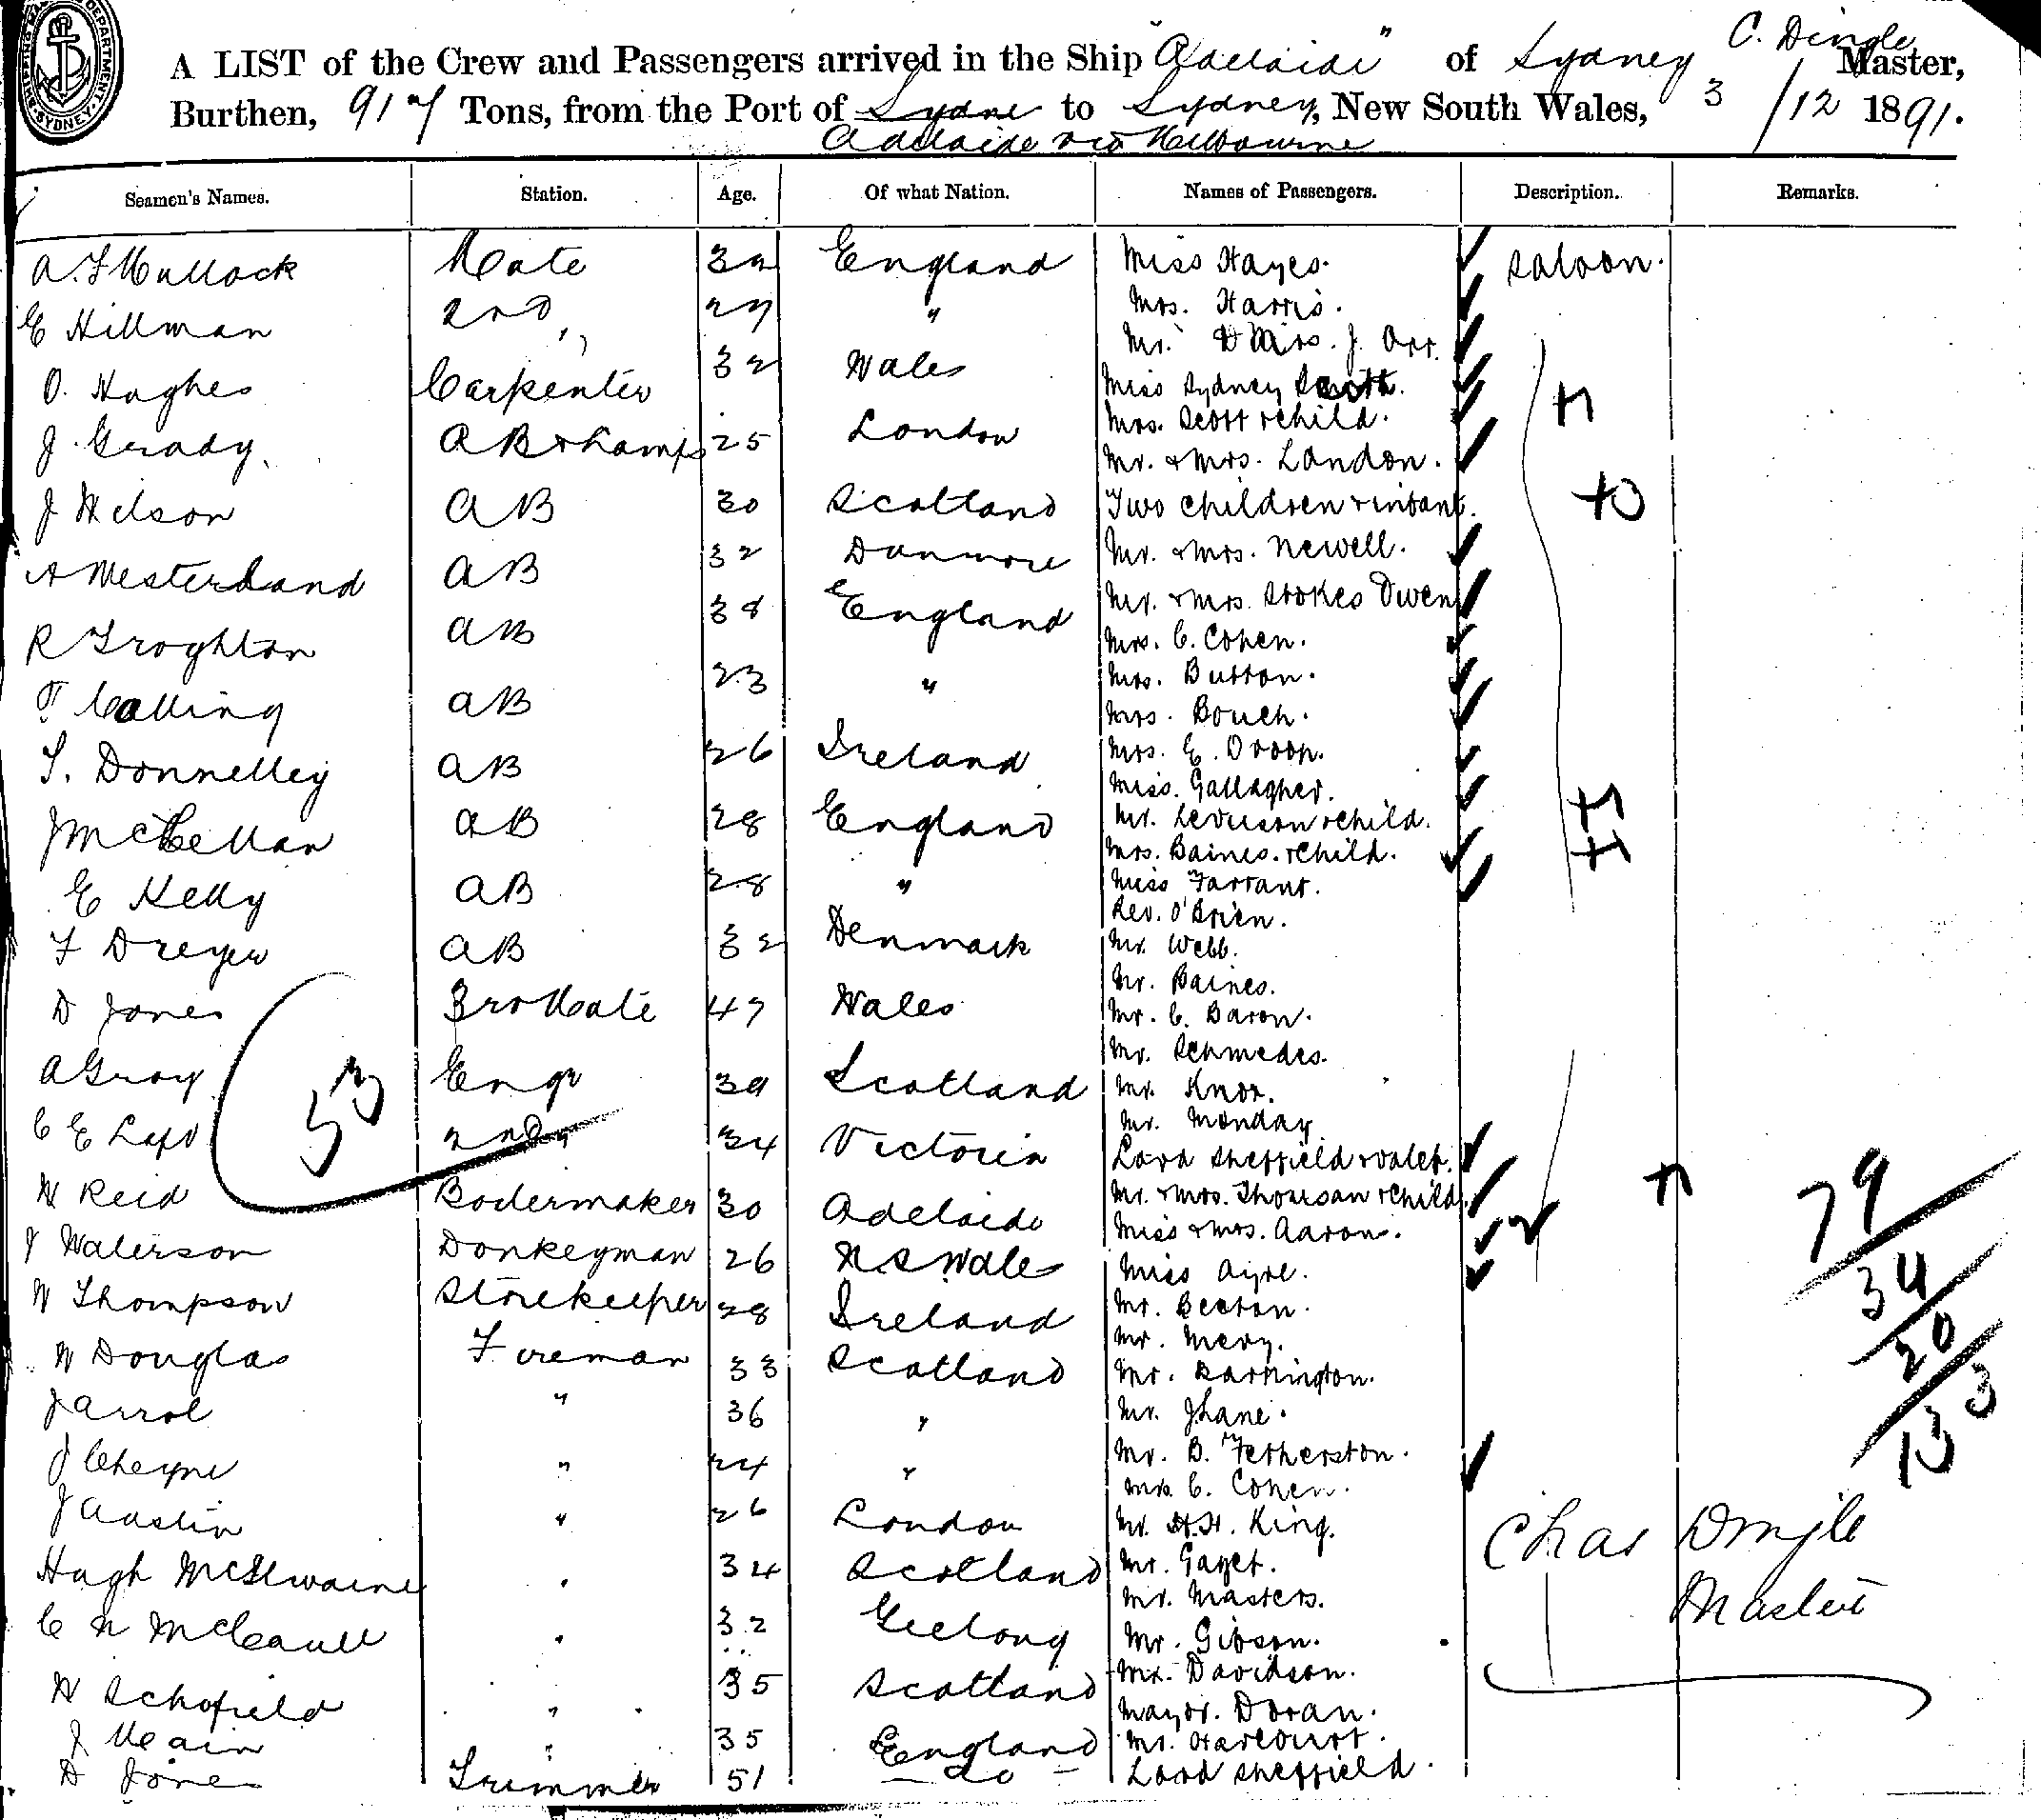 SHIPPING MASTER'S DEPARTMENT SYDNEY
C. Dingle
A LIST of the Crew and Passengers arrived in the Ship "Adelaide" of Sydney Master,
Burthen, 917 Tons, from the Port of Sydne to Sydney, New South Wales, 3/12 1891.
Adelaide via Melbourne
Seamen's Names. Station. Age. Of what Nation. Names of Passengers. Description. Remarks.
Mate England Miss Hayes. Saloon.
E Hillman 2nd " 27 " Mrs. Harris.
Mr. & Mrs. J. Orr.
O. Hughes Carpenter 32 Wales Miss Sydney
Mrs. Scott & child.
J. Grady. AB & Lamps 25 London Mr. & Mrs. Landon.
J Wilson AB 30 Scotland Two children & infant.
A Westerland AB 32 Mr. & Mrs. Newell.
R Troghton AB 38 England Mr. & Mrs. Stokes Owen
Mrs. C. Cohen.
T Colling AB 23 " Mrs. Button.
Mrs. Bouch.
T. Donnelley AB 26 Ireland Mrs. E. Droop.
Miss. Gallagher.
J McClellan AB 28 England Mr. Levuson & child.
Mrs. Baines. & Child.
E Kelly AB 28 " Miss Farrant.
Rev. O'Brien.
F Dreyer AB 32 Denmark Mr. Webb.
Mr. Baines.
D Jones 3rd Mate 47 Wales Mr. C. Baron.
Mr. Schmedes.
A Gray Engr 39 Scotland Mr. Knox.
53
Mr. Monday
C E 2nd " 34 Victoria Lord Sheffield & valet.
W Reid Boilermaker 30 Adelaide Mr. & Mrs. Thoursan & Child.
Miss & Mrs. Aaron.
J Waterson Donkeyman 26 N. S Wales Miss Ayre.
W Thompson Storekeeper 28 Ireland Mr. Beeton.
Mr. Mery.
W Douglas Fireman 33 Scotland Mr. Barrington.
J Arrol " 36 " Mr. J Lane.
Mr. B. Fetherston.
J Cheyne " 24 " Mrs. C. Cohen.
J Austin " 26 London Mr. H.H. King.
Hugh McIlwaine " 34 Scotland Mr. Gayet.
Mr. Masters.
C N McCaull " 32 Geelong Mr. Gibson.
W Schofield " 35 Scotland Mr. Davidson.
Mayor. Doran.
J Meain " 35 England Mr. Harcourt.
D Jones Trimmer 51 do Lord Sheffield.
79
34
20
133
Chas Dingle
Master